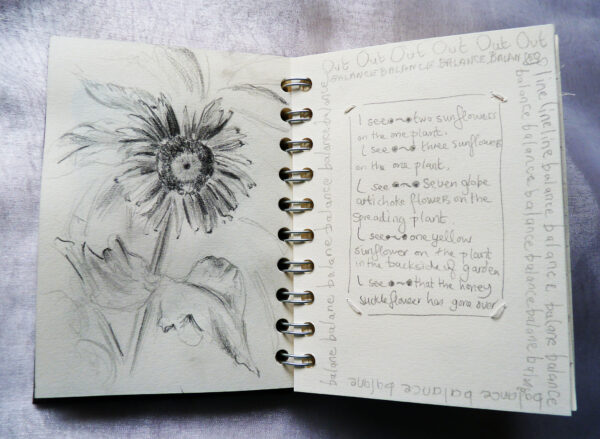 Out Out Out Out Out Out
BALANCE BALANCE BALANCE BALANCE
I see two sunflowers
on the one plant.
I see three sunflowers
on the one plant.
I see seven globe
artichoke flowers on the
spreading plant.
I see one yellow
sunflower on the plant
in the backside of garden
I see that the honey
suckleflower has gone over
balane balane balane balance balance balance
line line line balance balance balane balance
balance balance balance balane balane
balance balance balance balane